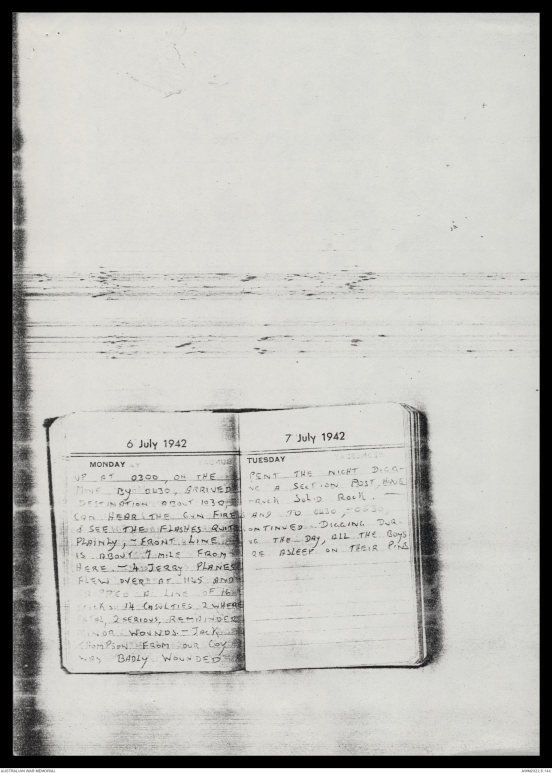 6 July 1942
MONDAY
UP AT 0300, ON THE
MOVE BY 0430, ARRIVED
DESTINATION ABOUT 1030,
CAN HEAR THE GUN FIRE
& SEE THE FLASHES QUITE
PLAINLY, - FRONT LINE
IS ABOUT 7 MILE FROM
HERE. - 4 JERRY PLANES
FLEW OVER AT 1145 AND
A LINE OF 16
14 CASULTIES 2 WHERE
FATAL, 2 SERIOUS, REMAINDER
MINOR WOUNDS - JACK
THOMPSON FROM OUR COY
WAS BADLY WOUNDED
7 July 1942
TUESDAY
PENT THE NIGHT DIGG-
NG A SECTION POST, HAVE
TRUCK SOLID ROCK. -
AND TO 0430, - 0630,
ONTINUED DIGGING DUR-
NG THE DAY, ALL THE BOYS
RE ASLEEP ON THEIR PINS
AUSTRALIAN WAR MEMORIAL